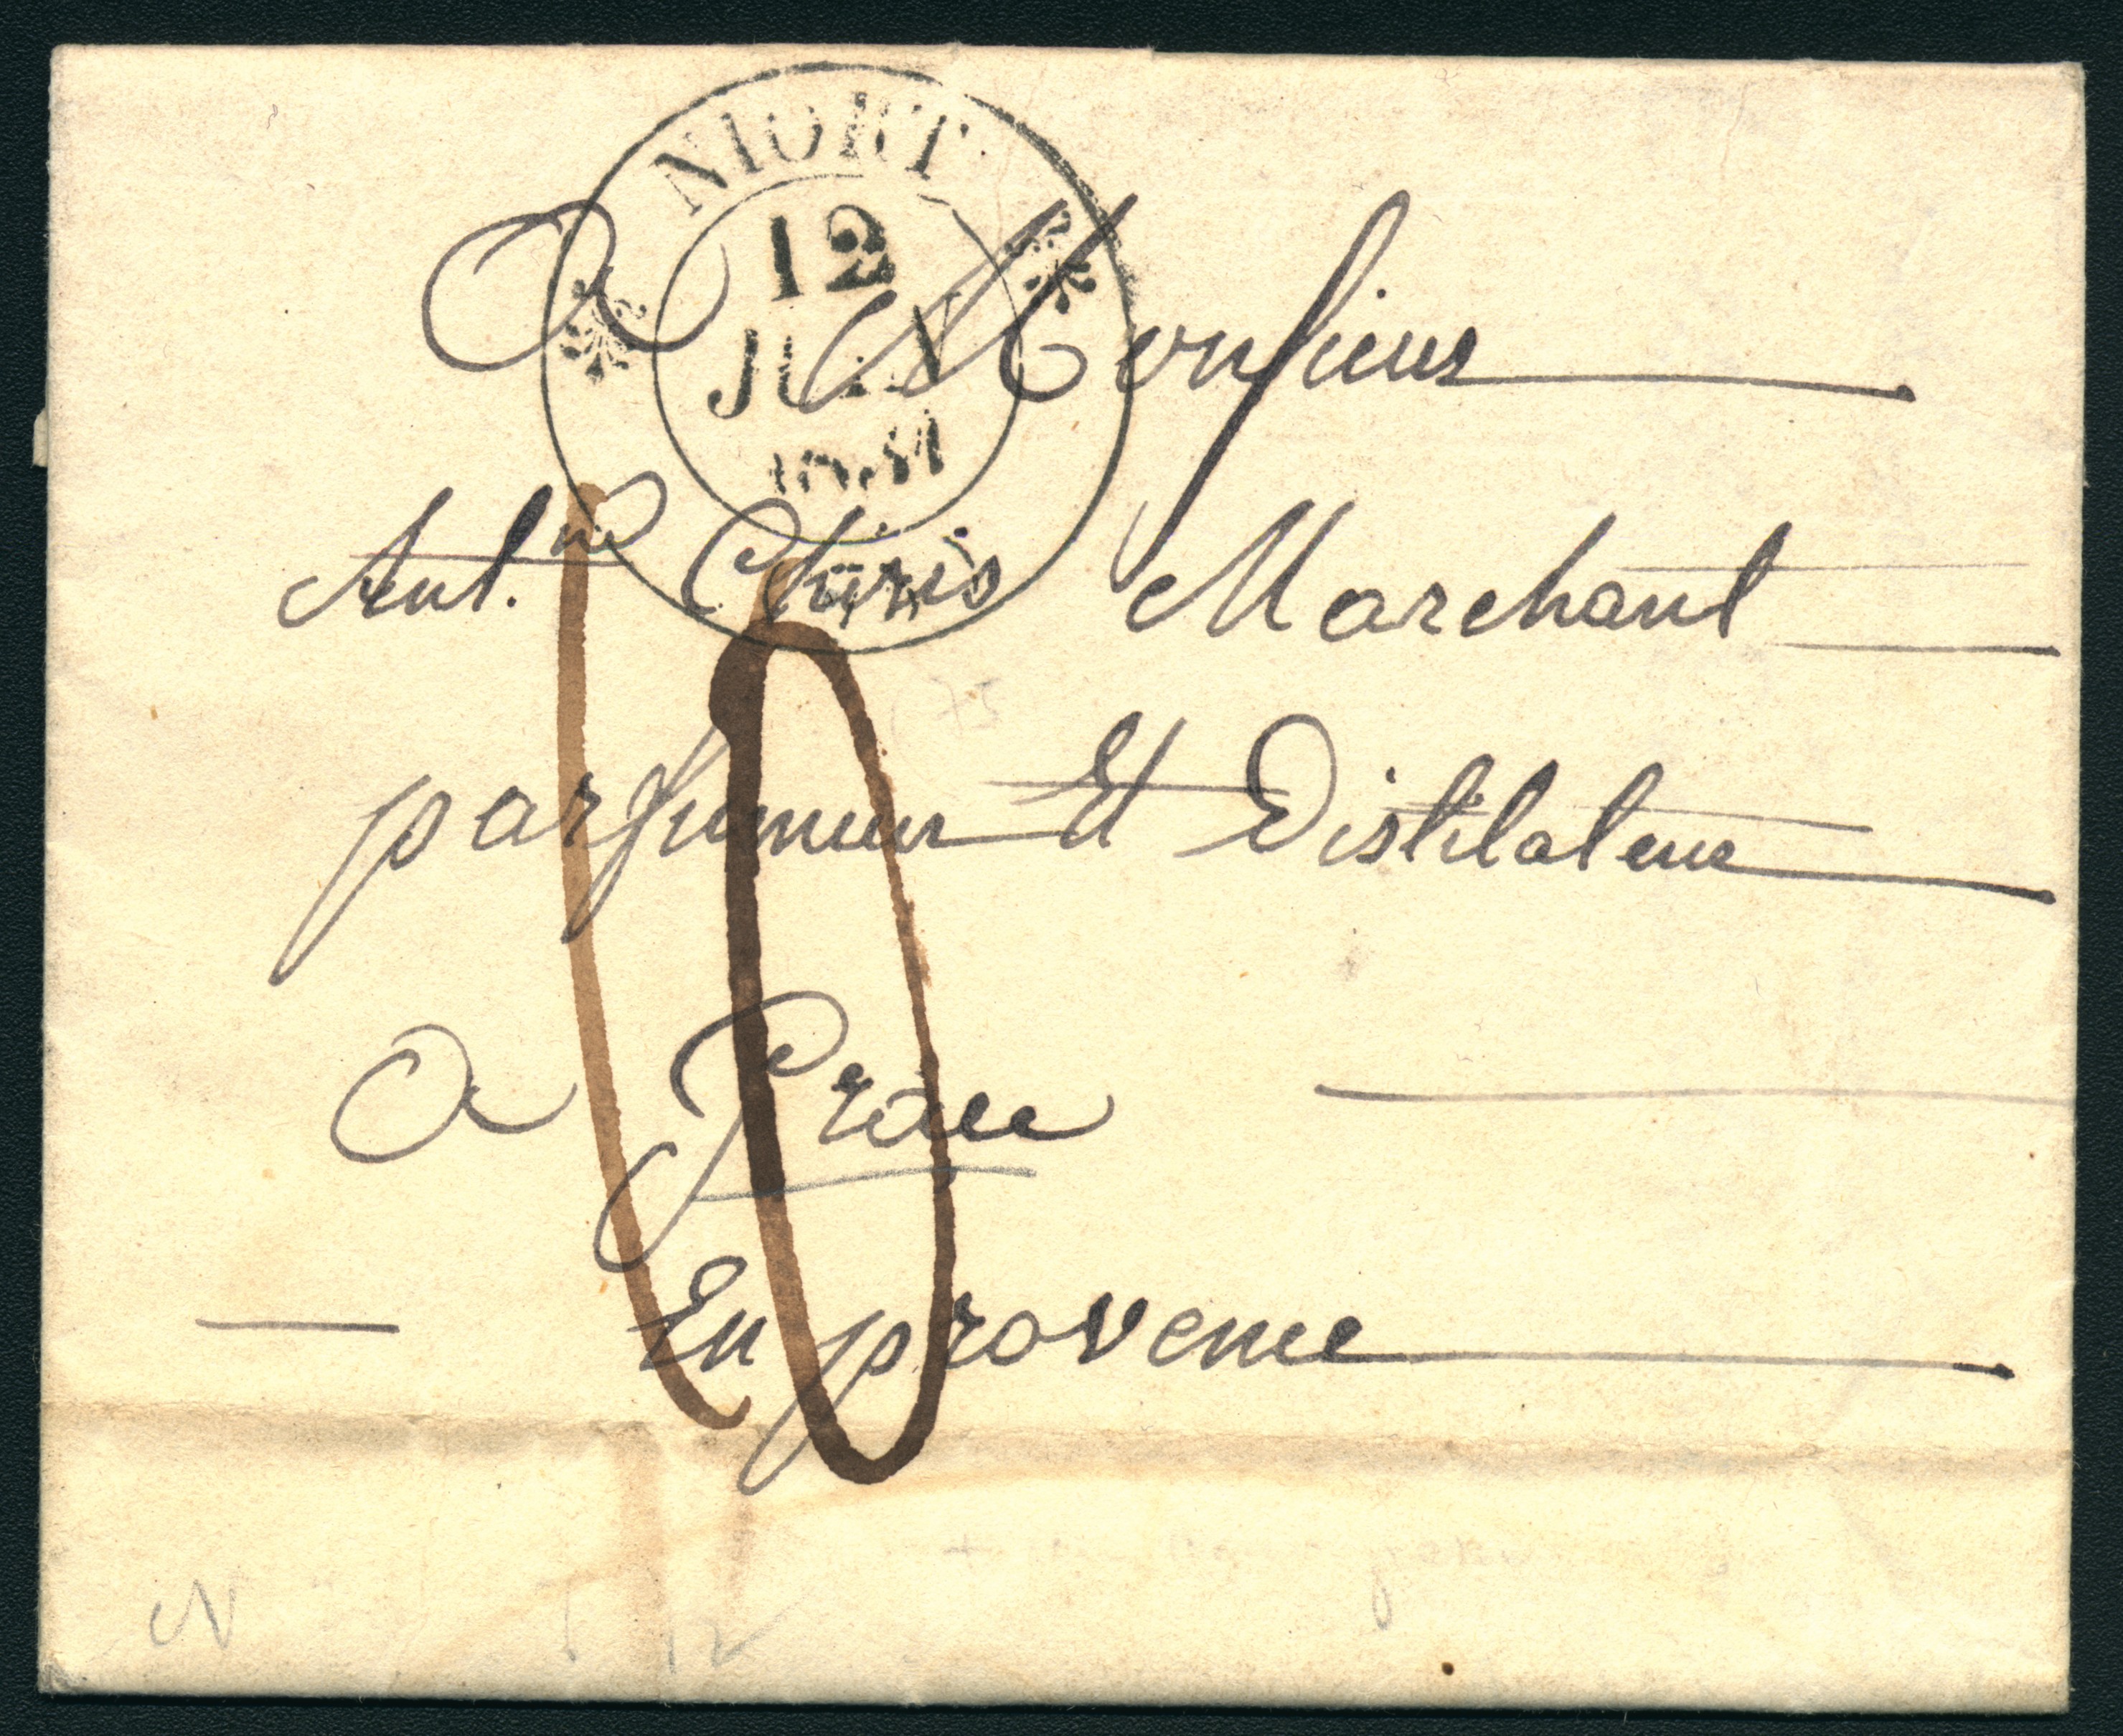 NIORT
12
JUIN
A Monsieur
Ant.ne Chiris Marchant
parfumeur Et Distilateur
A Grasse
En provence
10